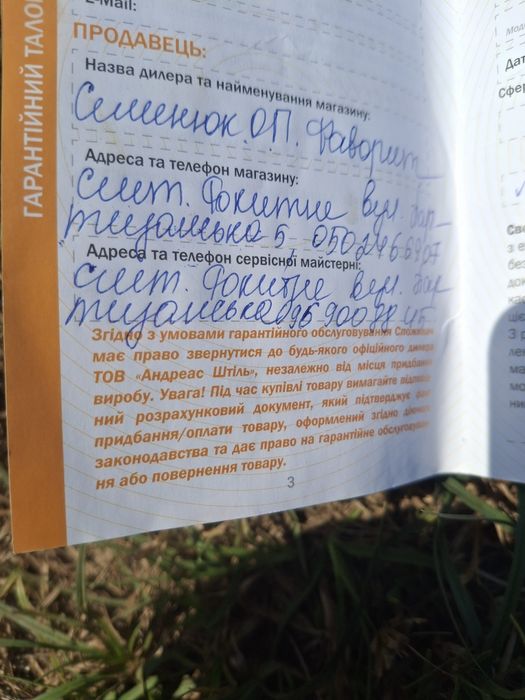 E-Mail:
ГАРАНТІЙНИЙ ТАЛО
ПРОДАВЕЦЬ:
Назва дилера та найменування магазину:
Семенюк.О.П. Фаворит
Адреса та телефон магазину:
смт. Рокитне вул. Пар-
тизанська 5
Адреса та телефон сервісної майстерні:
смт. Рокитне вул. Пар-
тизанська
Згідно з умовами гарантійного обслуговування Споживач
має право звернутися до будь-якого офіційного дилера
ТОВ «Андреас Штіль», незалежно від місця придбання
виробу. Увага! Під час купівлі товару вимагайте
ний розрахунковий документ, який підтверджує
придбання/оплати товару, оформлений згідно
законодавства та дає право на гарантійне обслуговуван-
ня або повернення товару.
3